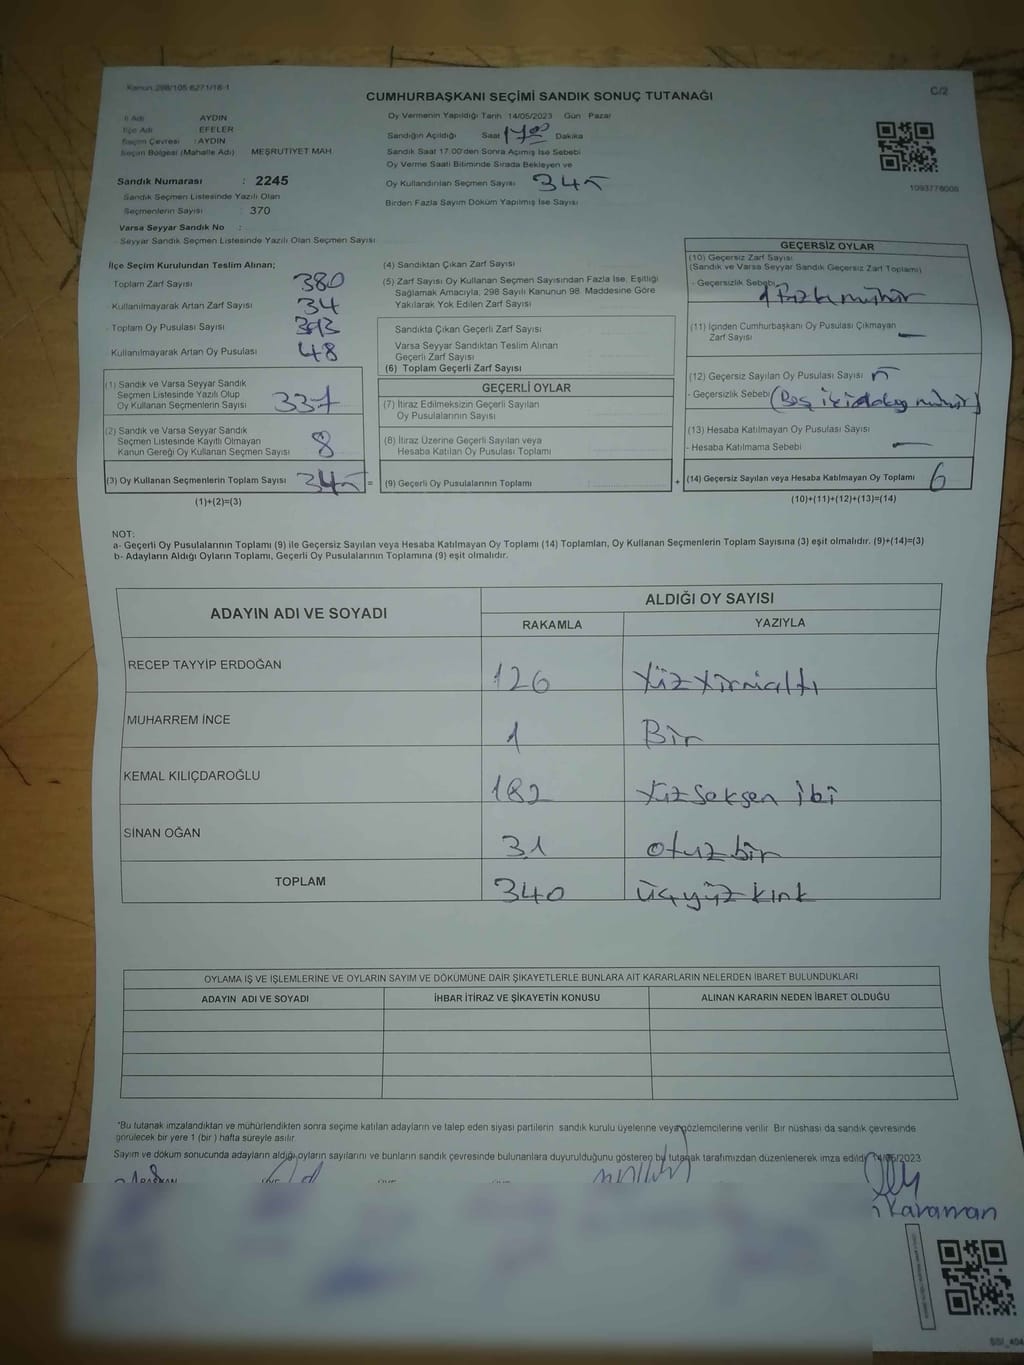 Kanun 298/105 6271/18-1
C/2
CUMHURBAŞKANI SEÇİMİ SANDIK SONUÇ TUTANAĞI
İl Adı AYDIN
İlçe Adı EFELER
Seçim Çevresi : AYDIN
Seçim Bölgesi (Mahalle Adı) MEŞRUTİYET MAH.
Sandık Numarası : 2245
Sandık Seçmen Listesinde Yazılı Olan
Seçmenlerin Sayısı : 370
Varsa Seyyar Sandık No :
Seyyar Sandık Seçmen Listesinde Yazılı Olan Seçmen Sayısı
Oy Vermenin Yapıldığı Tarih 14/05/2023 Gün Pazar
Sandığın Açıldığı Saat 17 00 Dakika
Sandık Saat 17:00'den Sonra Açılmış İse Sebebi
Oy Verme Saati Bitiminde Sırada Bekleyen ve
Oy Kullandırılan Seçmen Sayısı 345
Birden Fazla Sayım Döküm Yapılmış İse Sayısı
1093776008
İlçe Seçim Kurulundan Teslim Alınan;
Toplam Zarf Sayısı 380
- Kullanılmayarak Artan Zarf Sayısı 34
- Toplam Oy Pusulası Sayısı 393
- Kullanılmayarak Artan Oy Pusulası 48
(1) Sandık ve Varsa Seyyar Sandık
Seçmen Listesinde Yazılı Olup
Oy Kullanan Seçmenlerin Sayısı 337
(2) Sandık ve Varsa Seyyar Sandık
Seçmen Listesinde Kayıtlı Olmayan
Kanun Gereği Oy Kullanan Seçmen Sayısı 8
(3) Oy Kullanan Seçmenlerin Toplam Sayısı 345 =
(1)+(2)=(3)
(4) Sandıktan Çıkan Zarf Sayısı
(5) Zarf Sayısı Oy Kullanan Seçmen Sayısından Fazla İse, Eşitliği
Sağlamak Amacıyla, 298 Sayılı Kanunun 98. Maddesine Göre
Yakılarak Yok Edilen Zarf Sayısı
Sandıkta Çıkan Geçerli Zarf Sayısı
Varsa Seyyar Sandıktan Teslim Alınan
Geçerli Zarf Sayısı
(6) Toplam Geçerli Zarf Sayısı
GEÇERLİ OYLAR
(7) İtiraz Edilmeksizin Geçerli Sayılan
Oy Pusulalarının Sayısı
(8) İtiraz Üzerine Geçerli Sayılan veya
Hesaba Katılan Oy Pusulası Toplamı
(9) Geçerli Oy Pusulalarının Toplamı +
GEÇERSİZ OYLAR
(10) Geçersiz Zarf Sayısı
(Sandık ve Varsa Seyyar Sandık Geçersiz Zarf Toplamı)
- Geçersizlik Sebebi 1 fazla mühür
(11) İçinden Cumhurbaşkanı Oy Pusulası Çıkmayan
Zarf Sayısı —
(12) Geçersiz Sayılan Oy Pusulası Sayısı 5
- Geçersizlik Sebebi (Beş mühür)
(13) Hesaba Katılmayan Oy Pusulası Sayısı
- Hesaba Katılmama Sebebi —
(14) Geçersiz Sayılan veya Hesaba Katılmayan Oy Toplamı 6
(10)+(11)+(12)+(13)=(14)
NOT:
a- Geçerli Oy Pusulalarının Toplamı (9) ile Geçersiz Sayılan veya Hesaba Katılmayan Oy Toplamı (14) Toplamları, Oy Kullanan Seçmenlerin Toplam Sayısına (3) eşit olmalıdır. (9)+(14)=(3)
b- Adayların Aldığı Oyların Toplamı, Geçerli Oy Pusulalarının Toplamına (9) eşit olmalıdır.
ADAYIN ADI VE SOYADI ALDIĞI OY SAYISI
RAKAMLA YAZIYLA
RECEP TAYYİP ERDOĞAN 126 Yüz Yirmialtı
MUHARREM İNCE 1 Bir
KEMAL KILIÇDAROĞLU 182 Yüzseksen iki
SİNAN OĞAN 31 otuz bir
TOPLAM 340 üçyüz kırk
OYLAMA İŞ VE İŞLEMLERİNE VE OYLARIN SAYIM VE DÖKÜMÜNE DAİR ŞİKAYETLERLE BUNLARA AİT KARARLARIN NELERDEN İBARET BULUNDUKLARI
ADAYIN ADI VE SOYADI İHBAR İTİRAZ VE ŞİKAYETİN KONUSU ALINAN KARARIN NEDEN İBARET OLDUĞU
*Bu tutanak imzalandıktan ve mühürlendikten sonra seçime katılan adayların ve talep eden siyasi partilerin sandık kurulu üyelerine veya gözlemcilerine verilir. Bir nüshası da sandık çevresinde
görülecek bir yere 1 (bir) hafta süreyle asılır.
Sayım ve döküm sonucunda adayların aldığı oyların sayılarını ve bunların sandık çevresinde bulunanlara duyurulduğunu gösteren bu tutanak tarafımızdan düzenlenerek imza edildi. 14/05/2023
BAŞKAN
Karaman